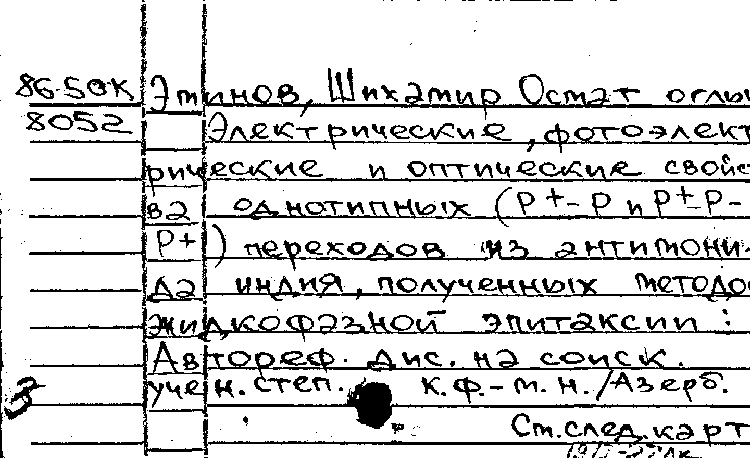 86-50К Эминов, Шихамир Осмат оглы
8052 Электрические, фотоэлект
рические и оптические свойс
ва однотипных (Р+-Р и Р+-Р-
Р+) переходов из антимони-
да индия, полученных методо
жидкофазной эпитаксии :
Автореф. дис. на соиск.
учен. степ. к.ф.-м.н./Азерб.
См.след.карт